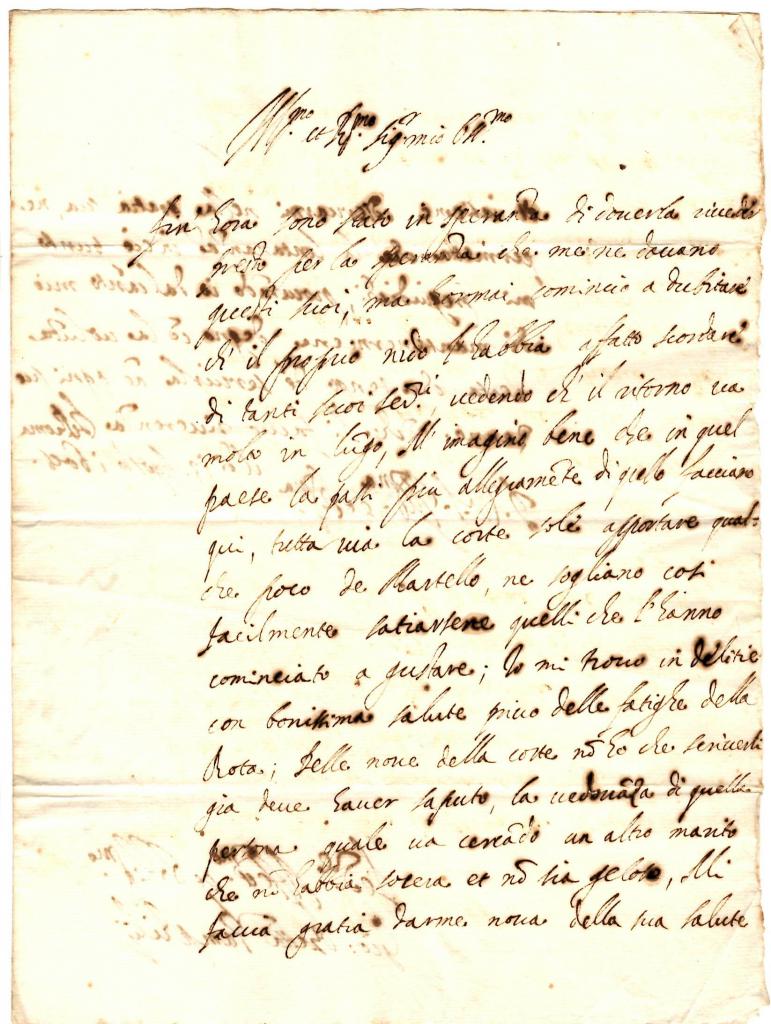 Ill.mo et R.mo Sig.r mio Oss.mo
Fin hora sono stato in speranza di doverla rivedere
presto per la speranza che me ne davano
questi suoi, ma hormai comincio a dubitare
ch' il proprio nido l'habbia affatto scordare
di tanti suoi ser.ri, vedendo ch' il ritorno va
molo in lungo, M' imagino bene che in quel
paese la passi piu allegramẽte di quello facciamo
qui, tutta via la corte sole apportare qual-
che poco de Martello, ne sogliano cosi
facilmente satiarsene quelli che l'hanno
cominciato a gustare; Io mi trovo in delitie
con bonissima salute privo delle fatighe della
Rota; Delle nove della corte nõ ho che scriverli
gia deve haver saputo, la vedovãza di quella
persona quale va cercãdo un altro marito
che nõ habbia socera et nõ sia geloso, Mi
faccia gratia darme nova della sua salute